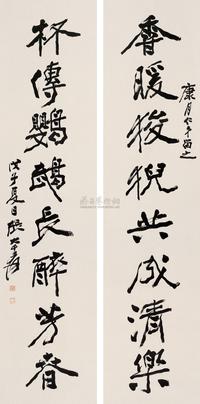 康月仁弟属之
香暖狻猊共成清樂
杯傳鸚鵡長醉芳春
戊子夏日張大千爰